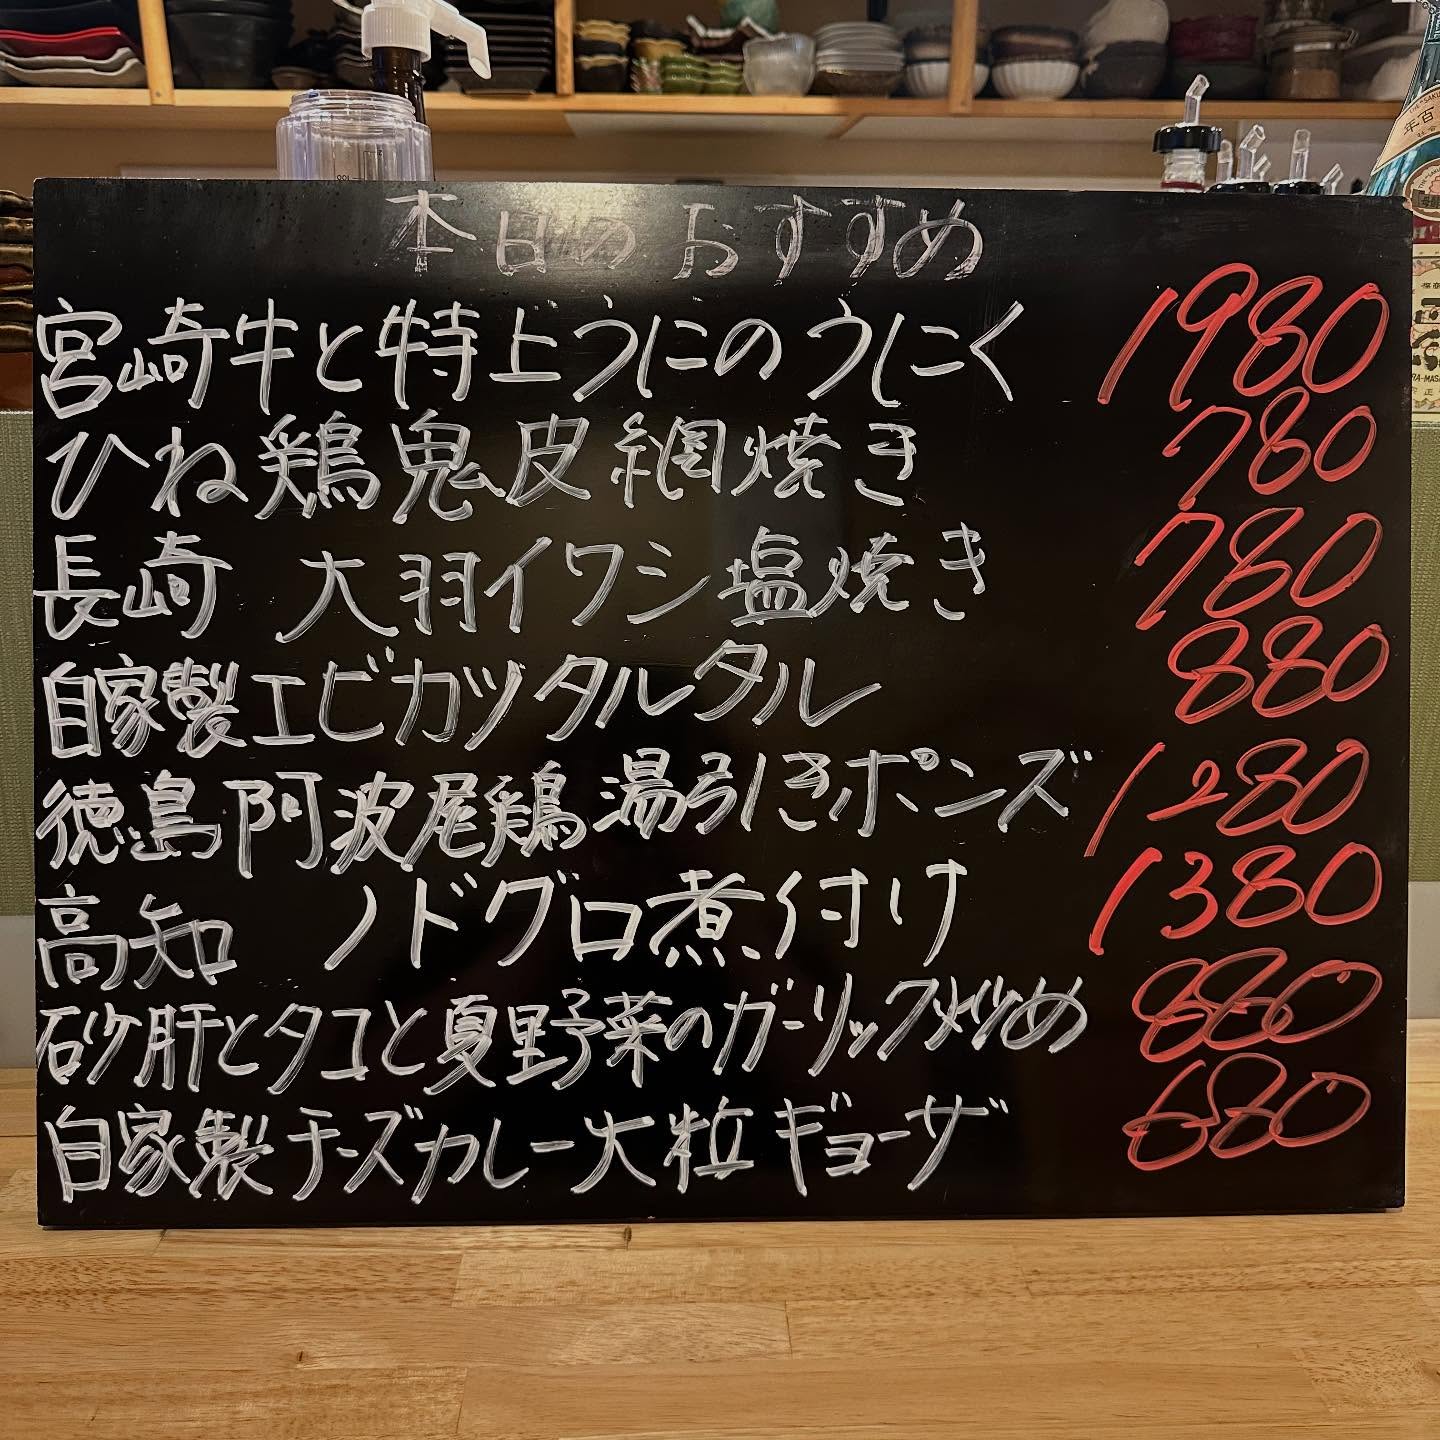 本日のおすすめ
宮崎牛と特上うにのうにく 1980
ひね鶏鬼皮網焼き 780
長崎 大羽イワシ塩焼き 780
自家製エビカツタルタル 880
徳島阿波尾鶏湯引きポンズ 1280
高知 ノドグロ煮付け 1380
砂肝とタコと夏野菜のガーリック炒め 880
自家製チーズカレー大粒ギョーザ 680